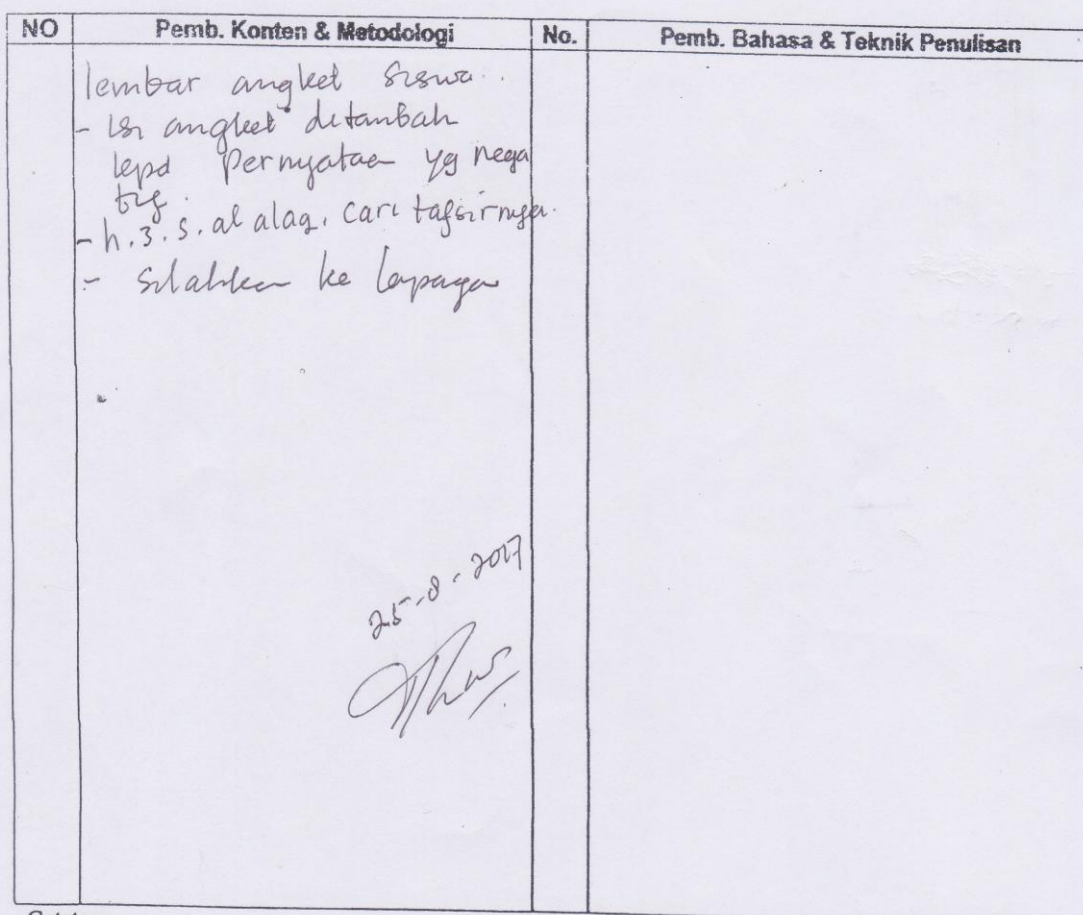 NO
Pemb. Konten & Metodologi
No.
Pemb. Bahasa & Teknik Penulisan
lembar angket siswa
- isi angket ditambah
kepd pernyataan yg nega
tif.
- h.3. S. al alaq. cari tafsirnya.
- Silahkan ke lapangan
25-8-2017